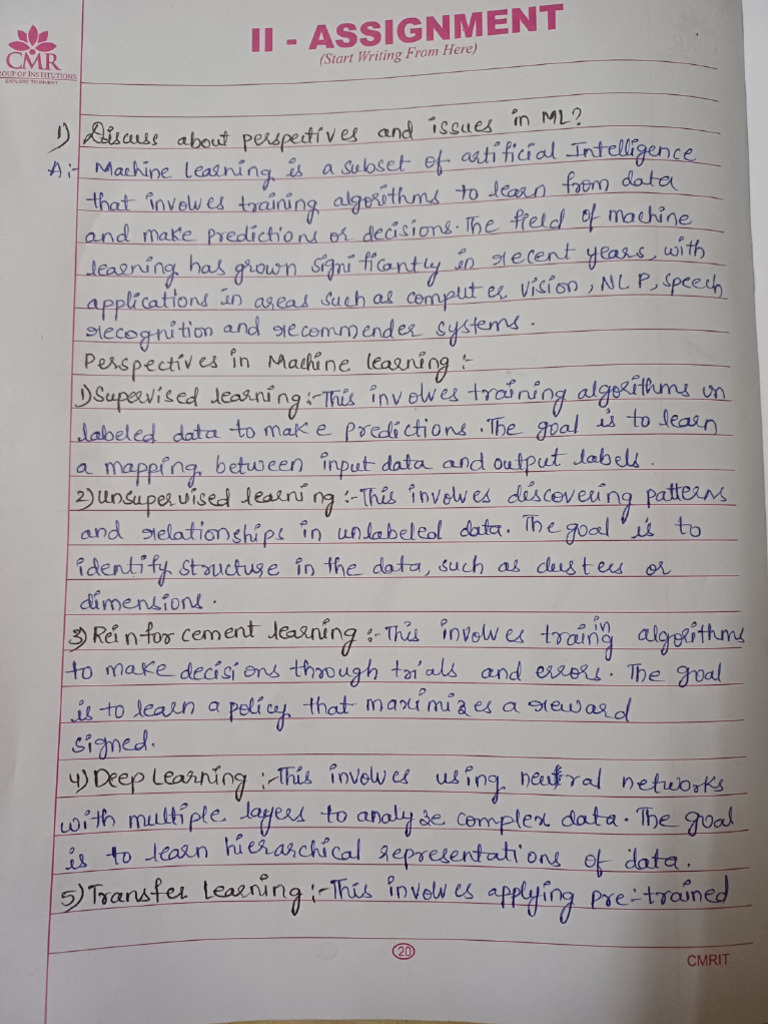 CMR
GROUP OF INSTITUTIONS
EXPLORE TO INVENT
II - ASSIGNMENT
(Start Writing From Here)
1) Discuss about perspectives and issues in ML?
A:- Machine learning is a subset of artificial Intelligence
that involves training algorithms to learn from data
and make predictions or decisions. The field of machine
learning has grown significantly in recent years, with
applications in areas such as computer vision, NLP, speech
recognition and recommender systems.
Perspectives in Machine learning :-
1) Supervised learning :- This involves training algorithms on
labeled data to make predictions. The goal is to learn
a mapping between input data and output labels.
2) unsupervised learning :- This involves discovering patterns
and relationships in unlabeled data. The goal is to
identify structure in the data, such as clusters or
dimensions.
3) Reinforcement learning :- This involves training algorithms
to make decisions through trials and errors. The goal
is to learn a policy that maximizes a reward
signed.
4) Deep Learning :- This involves using neutral networks
with multiple layers to analyze complex data. The goal
is to learn hierarchical representations of data.
5) Transfer Learning :- This involves applying pre-trained
20
CMRIT